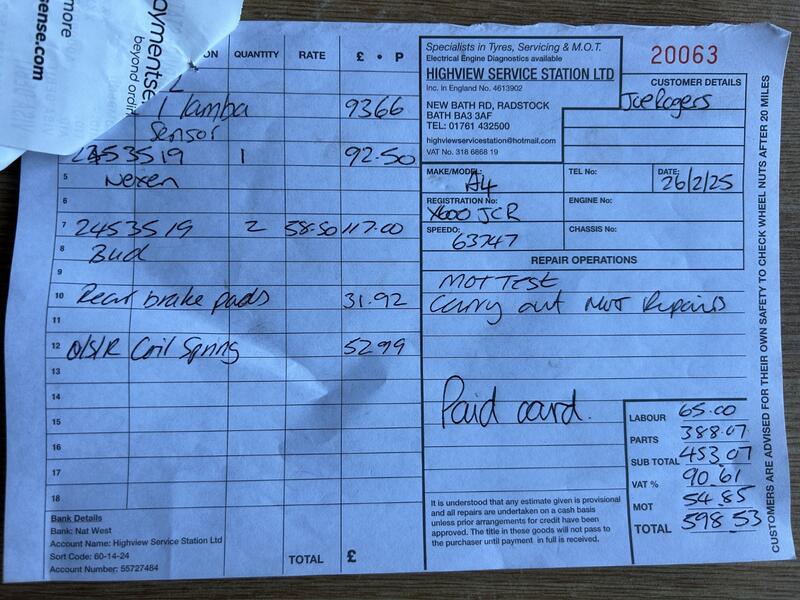 more
sense.com
aymentse
beyond ordi
ON QUANTITY RATE £ • P
1 lamba 93.66
Sensor
2453519 1 92.50
5 Nexen
7 2453519 2 58.50 117.00
8 Bud
9
10 Rear brake pads 31.92
11
12 O/S/R Coil Spring 52.99
13
14
15
16
17
18
Bank Details
Bank: Nat West
Account Name: Highview Service Station Ltd
Sort Code: 60-14-24
Account Number: 55727484
TOTAL £
Specialists in Tyres, Servicing & M.O.T.
Electrical Engine Diagnostics available
HIGHVIEW SERVICE STATION LTD
Inc. in England No. 4613902
NEW BATH RD, RADSTOCK
BATH BA3 3AF
TEL: 01761 432500
highviewservicestation@hotmail.com
VAT No. 318 6868 19
20063
CUSTOMER DETAILS
Joe Rogers
MAKE/MODEL: A4
TEL No:
DATE: 26/2/25
REGISTRATION No: X600 JCR
ENGINE No:
SPEEDO: 63747
CHASSIS No:
REPAIR OPERATIONS
MOT TEST
Carry out MOT Repairs
Paid card.
LABOUR 65.00
PARTS 388.07
SUB TOTAL 453.07
VAT % 90.61
MOT 54.85
TOTAL 598.53
It is understood that any estimate given is provisional
and all repairs are undertaken on a cash basis
unless prior arrangements for credit have been
approved. The title in these goods will not pass to
the purchaser until payment in full is received.
CUSTOMERS ARE ADVISED FOR THEIR OWN SAFETY TO CHECK WHEEL NUTS AFTER 20 MILES